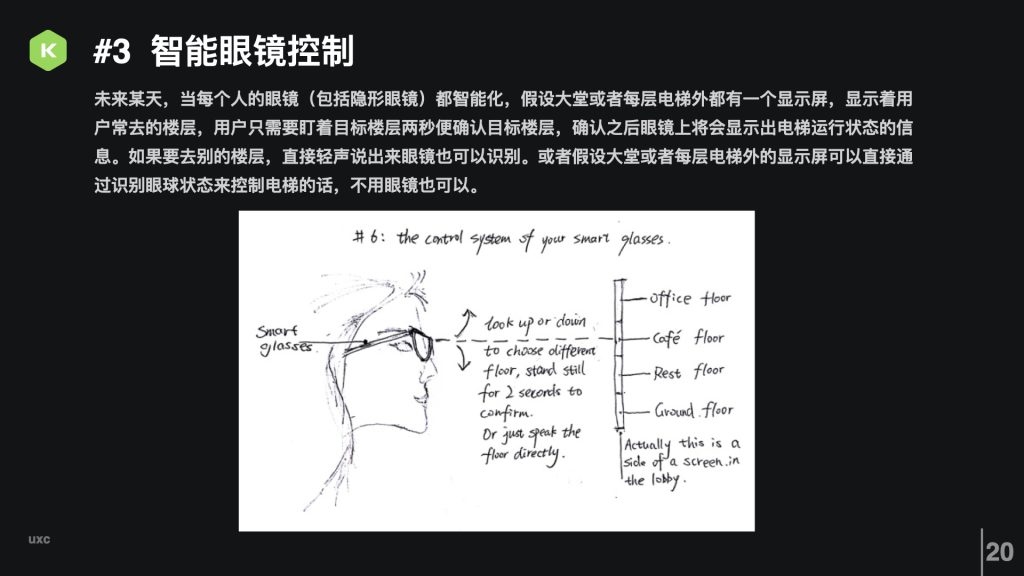 K
#3 智能眼镜控制
未来某天，当每个人的眼镜（包括隐形眼镜）都智能化，假设大堂或者每层电梯外都有一个显示屏，显示着用
户常去的楼层，用户只需要盯着目标楼层两秒便确认目标楼层，确认之后眼镜上将会显示出电梯运行状态的信
息。如果要去别的楼层，直接轻声说出来眼镜也可以识别。或者假设大堂或者每层电梯外的显示屏可以直接通
过识别眼球状态来控制电梯的话，不用眼镜也可以。
#6: the control system of your smart glasses.
smart
glasses
look up or down
to choose different
floor, stand still
for 2 seconds to
confirm.
Or just speak the
floor directly.
Office floor
Café floor
Rest floor
Ground floor
Actually this is a
side of a screen in
the lobby.
uxc
20